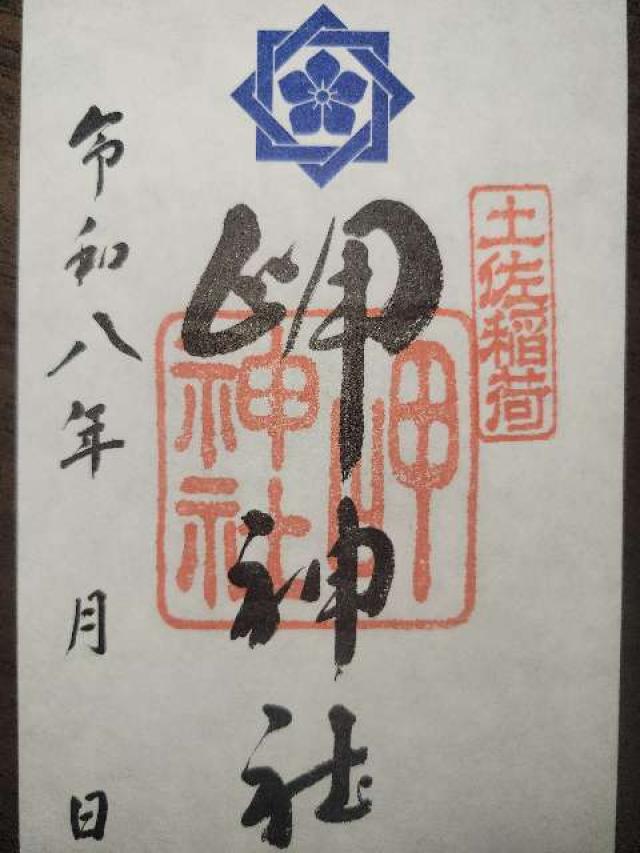 土佐稲荷
岬神社
岬神社
令和八年 月 日